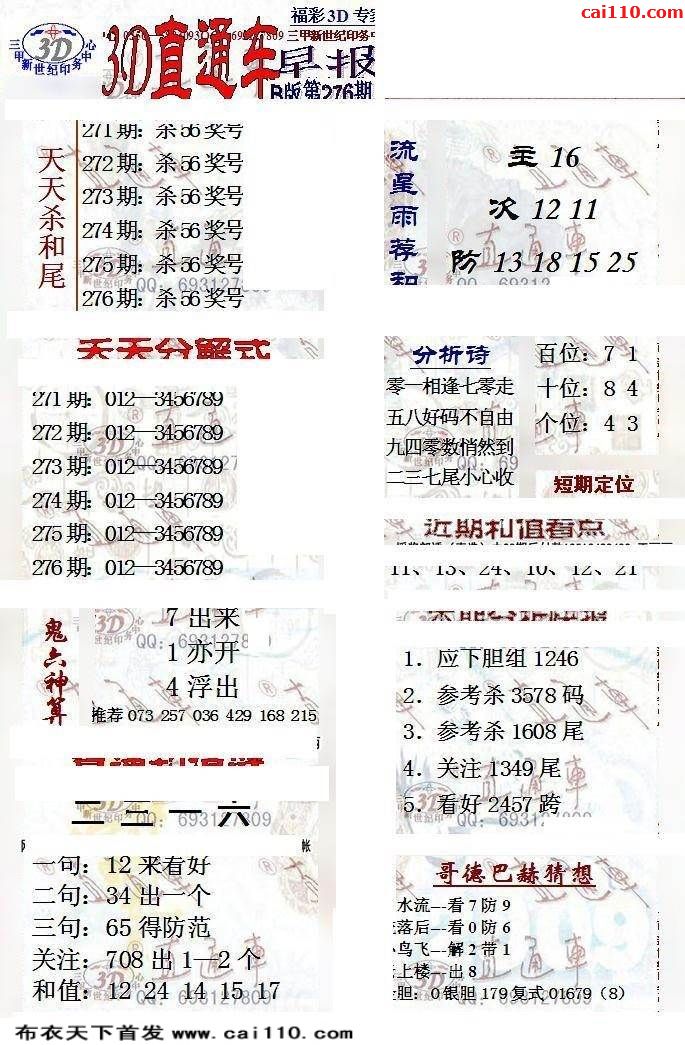 cai110.com
福彩3D 专
三甲新世纪印务中心
3D
3D直通车
早报
B版第276期
天天杀和尾
271期：杀56奖号
272期：杀56奖号
273期：杀56奖号
274期：杀56奖号
275期：杀56奖号
276期：杀56奖号
流星雨荐和
主 16
次 12 11
防 13 18 15 25
天天分解式
271期：012—3456789
272期：012—3456789
273期：012—3456789
274期：012—3456789
275期：012—3456789
276期：012—3456789
分析诗
零一相逢七零走
五八好码不自由
九四零数悄然到
二三七尾小心收
百位：7 1
十位：8 4
个位：4 3
短期定位
近期和值看点
11、13、24、10、12、21
鬼六神算
7 出来
1 亦开
4 浮出
推荐 073 257 036 429 168 215
1．应下胆组 1246
2．参考杀 3578 码
3．参考杀 1608 尾
4．关注 1349 尾
5．看好 2457 跨
一句：12 来看好
二句：34 出一个
三句：65 得防范
关注：708 出 1—2 个
和值：12 24 14 15 17
哥德巴赫猜想
水流---看 7 防 9
落后---看 0 防 6
鸟飞---解 2 带 1
上楼---出 8
胆：0 银胆 179 复式 01679（8）
布衣天下首发 www.cai110.com